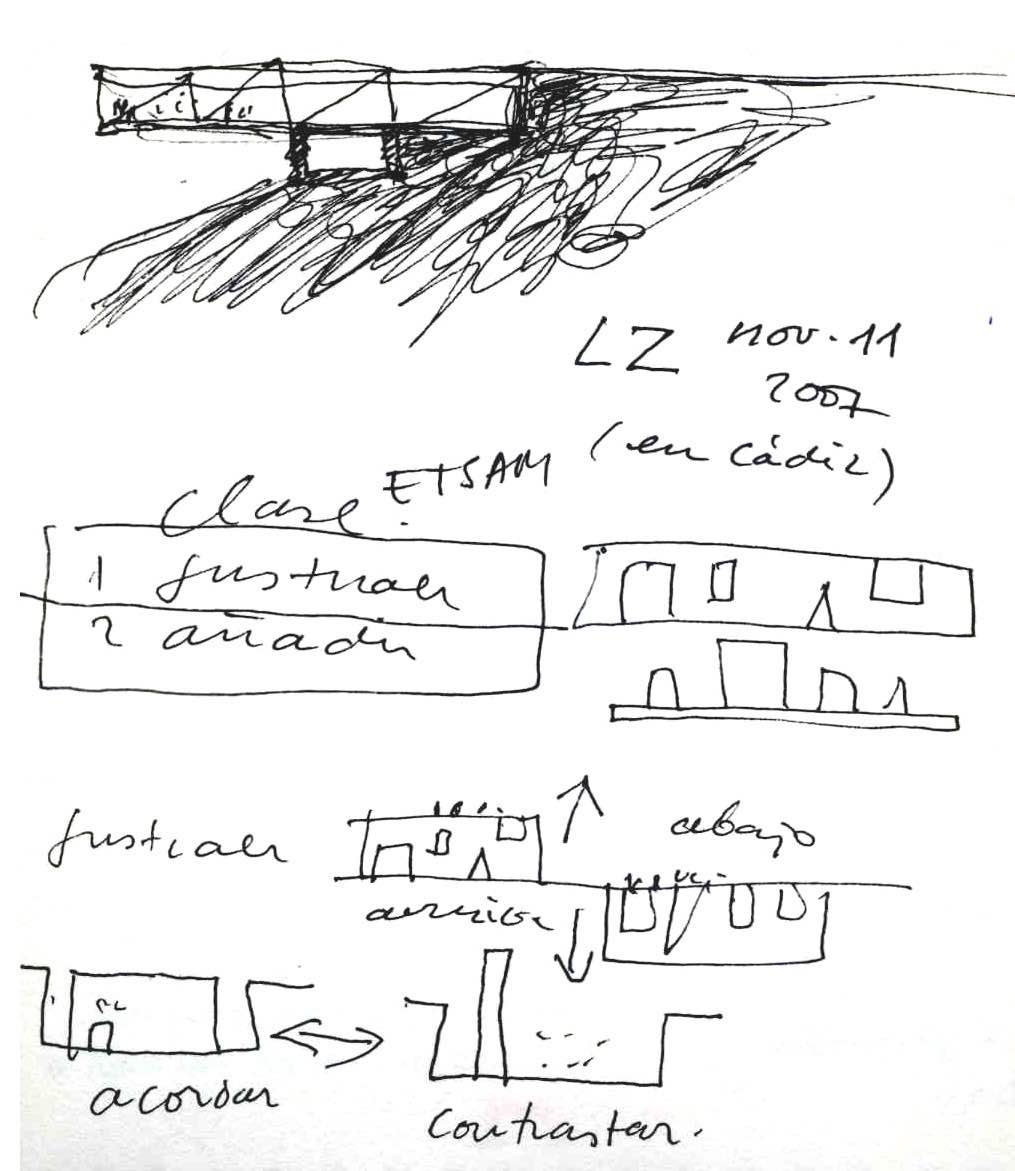 LZ nov. 11
2007
(en cádiz)
clase ETSAM
1 sustraer
2 añadir
sustraer
abajo
arriba
acordar
contrastar.